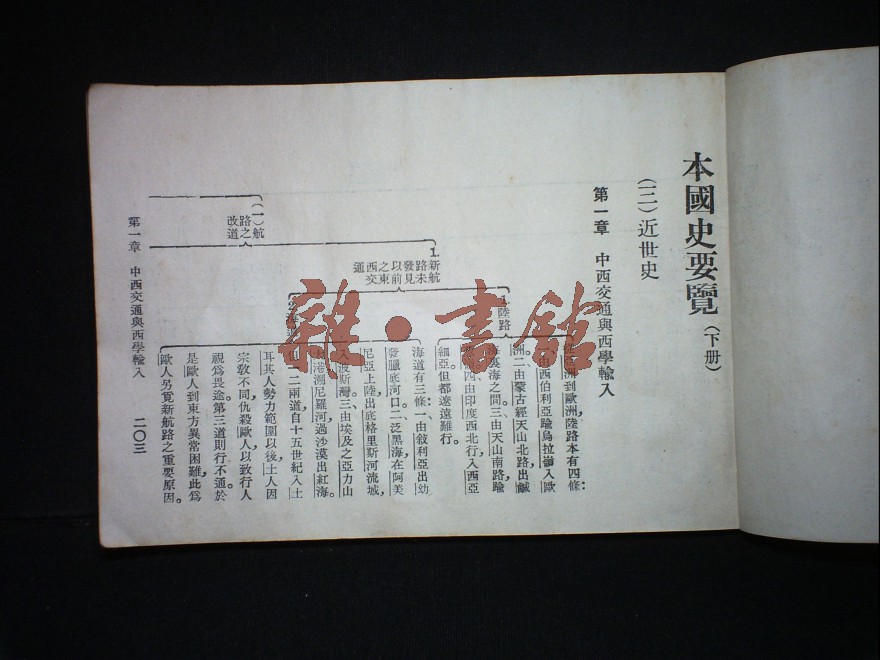 本國史要覽（下册）
（三）近世史
第一章　中西交通與西學輸入
（一）航
路之
改道
1.
新航
路未
發見
以前
之東
西交
通
陸路
到歐洲，陸路本有四條：
西伯利亞踰烏拉嶺入歐
洲；二、由蒙古經天山北路出鹹
海裏海之間；三、由天山南路，踰
四、由印度西北行，入西亞
細亞。但都遼遠難行。
海道有三條：一、由敍利亞出幼
發臘底河口；二、泛黑海，在阿美
尼亞上陸，出底格里斯河流域，
入波斯灣；三、由埃及之亞力山
大港，溯尼羅河，過沙漠，出紅海。
但一二兩道，自十五世紀入土
耳其人勢力範圍以後，土人因
宗敎不同，仇殺歐人，以致行人
視爲畏途。第三道則行不通。於
是歐人到東方異常困難，此爲
歐人另覓新航路之重要原因。
第一章　中西交通與西學輸入
二〇三
雜·書館